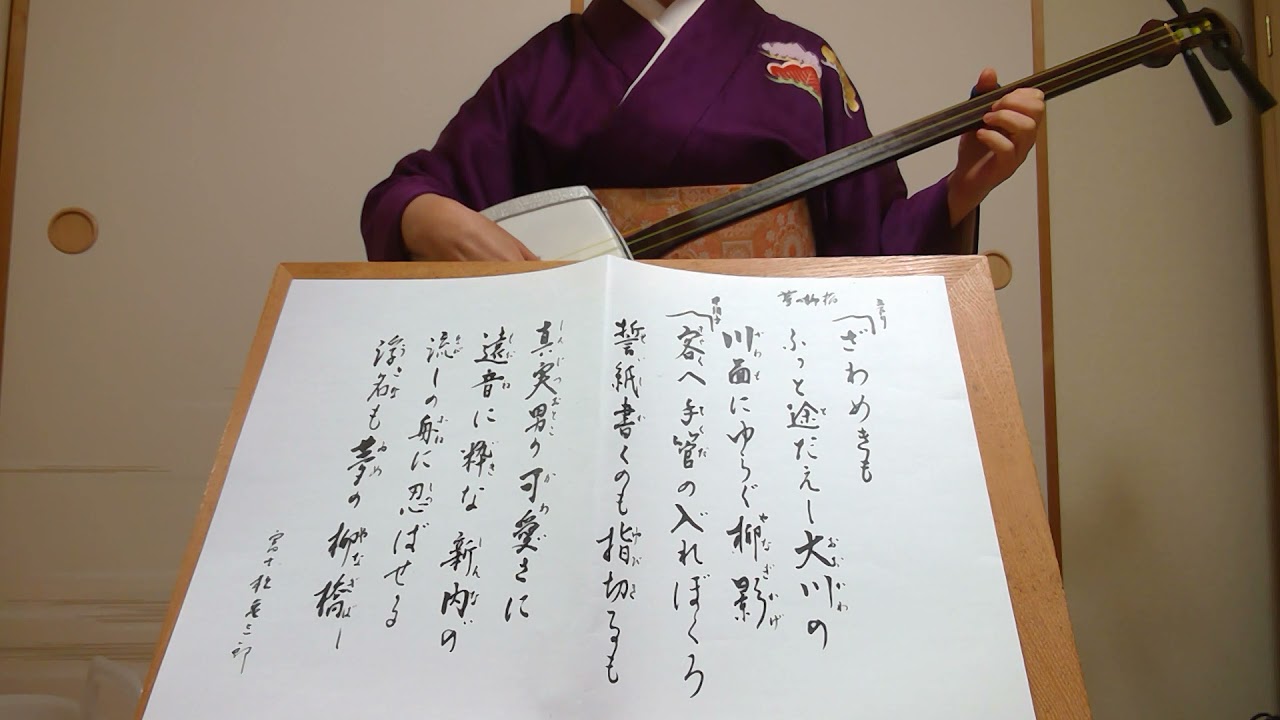 ざわめきも
ふっと途だえし大川の
川面にゆらぐ柳影
客へ手管の入れぼくろ
誓紙書くのも指切るも
真実男の可愛さに
遠音に粋な新内の
流しの舟に忍ばせる
浮名も夢の柳橋